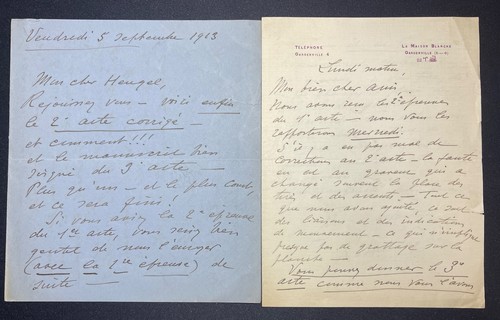 Vendredi 5 septembre 1913
Mon cher Heugel,
Réjouissez vous - voici enfin
le 2e acte corrigé -
et comment!!!
et le manuscrit bien
du 3e acte -
Plus qu'un - et le plus court,
et ce sera fini!
Si vous avez la 2e épreuve
du 1er acte, vous seriez bien
gentil de nous l'envoyer
(avec la 1re épreuve) de
suite -
TÉLÉPHONE
GARGENVILLE 4
LA MAISON BLANCHE
GARGENVILLE
Lundi matin,
Mon bien cher ami,
Nous avons reçu les 2es épreuves
du 1er acte - nous vous les
rapportons mercredi.
S'il y a eu pas mal de
corrections au 2e acte - la faute
en est au graveur qui a
changé souvent la place des
et des accents - Tout ce
que nous avons ajouté, ce sont
des liaisons et des indications
de mouvement - ce qui n'implique
presque pas de grattage sur la
planche -
Vous pouvez donner le 3e
acte comme nous vous l'avons